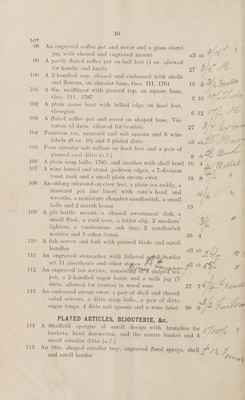 10
LOT
98 An engraved coffee pot and cover and a glass claret
jug with chased and engraved mount all at
99 A partly fluted coffee pot on ball feet (1 oz. allowed
for handle and knob) 27
100 A 2-handled cup, chased and embossed with shells
and flowers, on circular base, Geo. III, 1761 13
101 A 6in. muffineer with pierced top, on square base,
Geo. III, 1787 3 10
102 A plain sauce boat with frilled edge on hoof feet,
Georgian 6 12
103 A fluted coffee pot and cover on shaped base, Vic-
torian (5 dwts. allowed for ivories) 27
104 Fourteen tea, mustard and salt spoons and 6 wine
labels (8 oz. 10) and 3 plated ditto all at
105 Four circular salt cellars on hoof feet and a pair of
pierced oval ditto (a.f.) 8
106 A plain soup ladle, 1762, and another with shell bowl
107 A wine funnel and stand, gadroon edges, a 7-division
toast rack and a small plain cream ewer 18
108 An oblong inkstand on claw feet, a plain tea caddy, a
mustard pot (no liner) with ram's head and
wreaths, a miniature chamber candlestick, a small
ladle and 2 match boxes 13
109 A gilt bottle mount, a chased sweetmeat dish, a
small flask, a card case, a letter clip, 2 smokers'
lighters, a tambourine ash tray, 2 candlestick
nozzles and 9 other items 33 4
110 A fish server and fork with pierced blade and scroll
handles all at
111 An engraved stomacher with foliated scroll border
set 11 amethysts and other stones all at
112 An engraved tea service, consisting of a shaped tea
pot, a 2-handled sugar basin and a milk jug (7
dwts. allowed for ivories) in wood case 27
113 An embossed cream ewer, a pair of shell and thread
salad servers, a ditto soup ladle, a pair of ditto
sugar tongs, 4 ditto salt spoons and a wine label 30 0
PLATED ARTICLES, BIJOUTERIE, &c.
114 A Sheffield epergne of scroll design with branches for
baskets, head decoration, and the centre basket and 4
small circular ditto (a.f.)
115 An 18in. shaped circular tray, engraved floral sprays, shell
and scroll border